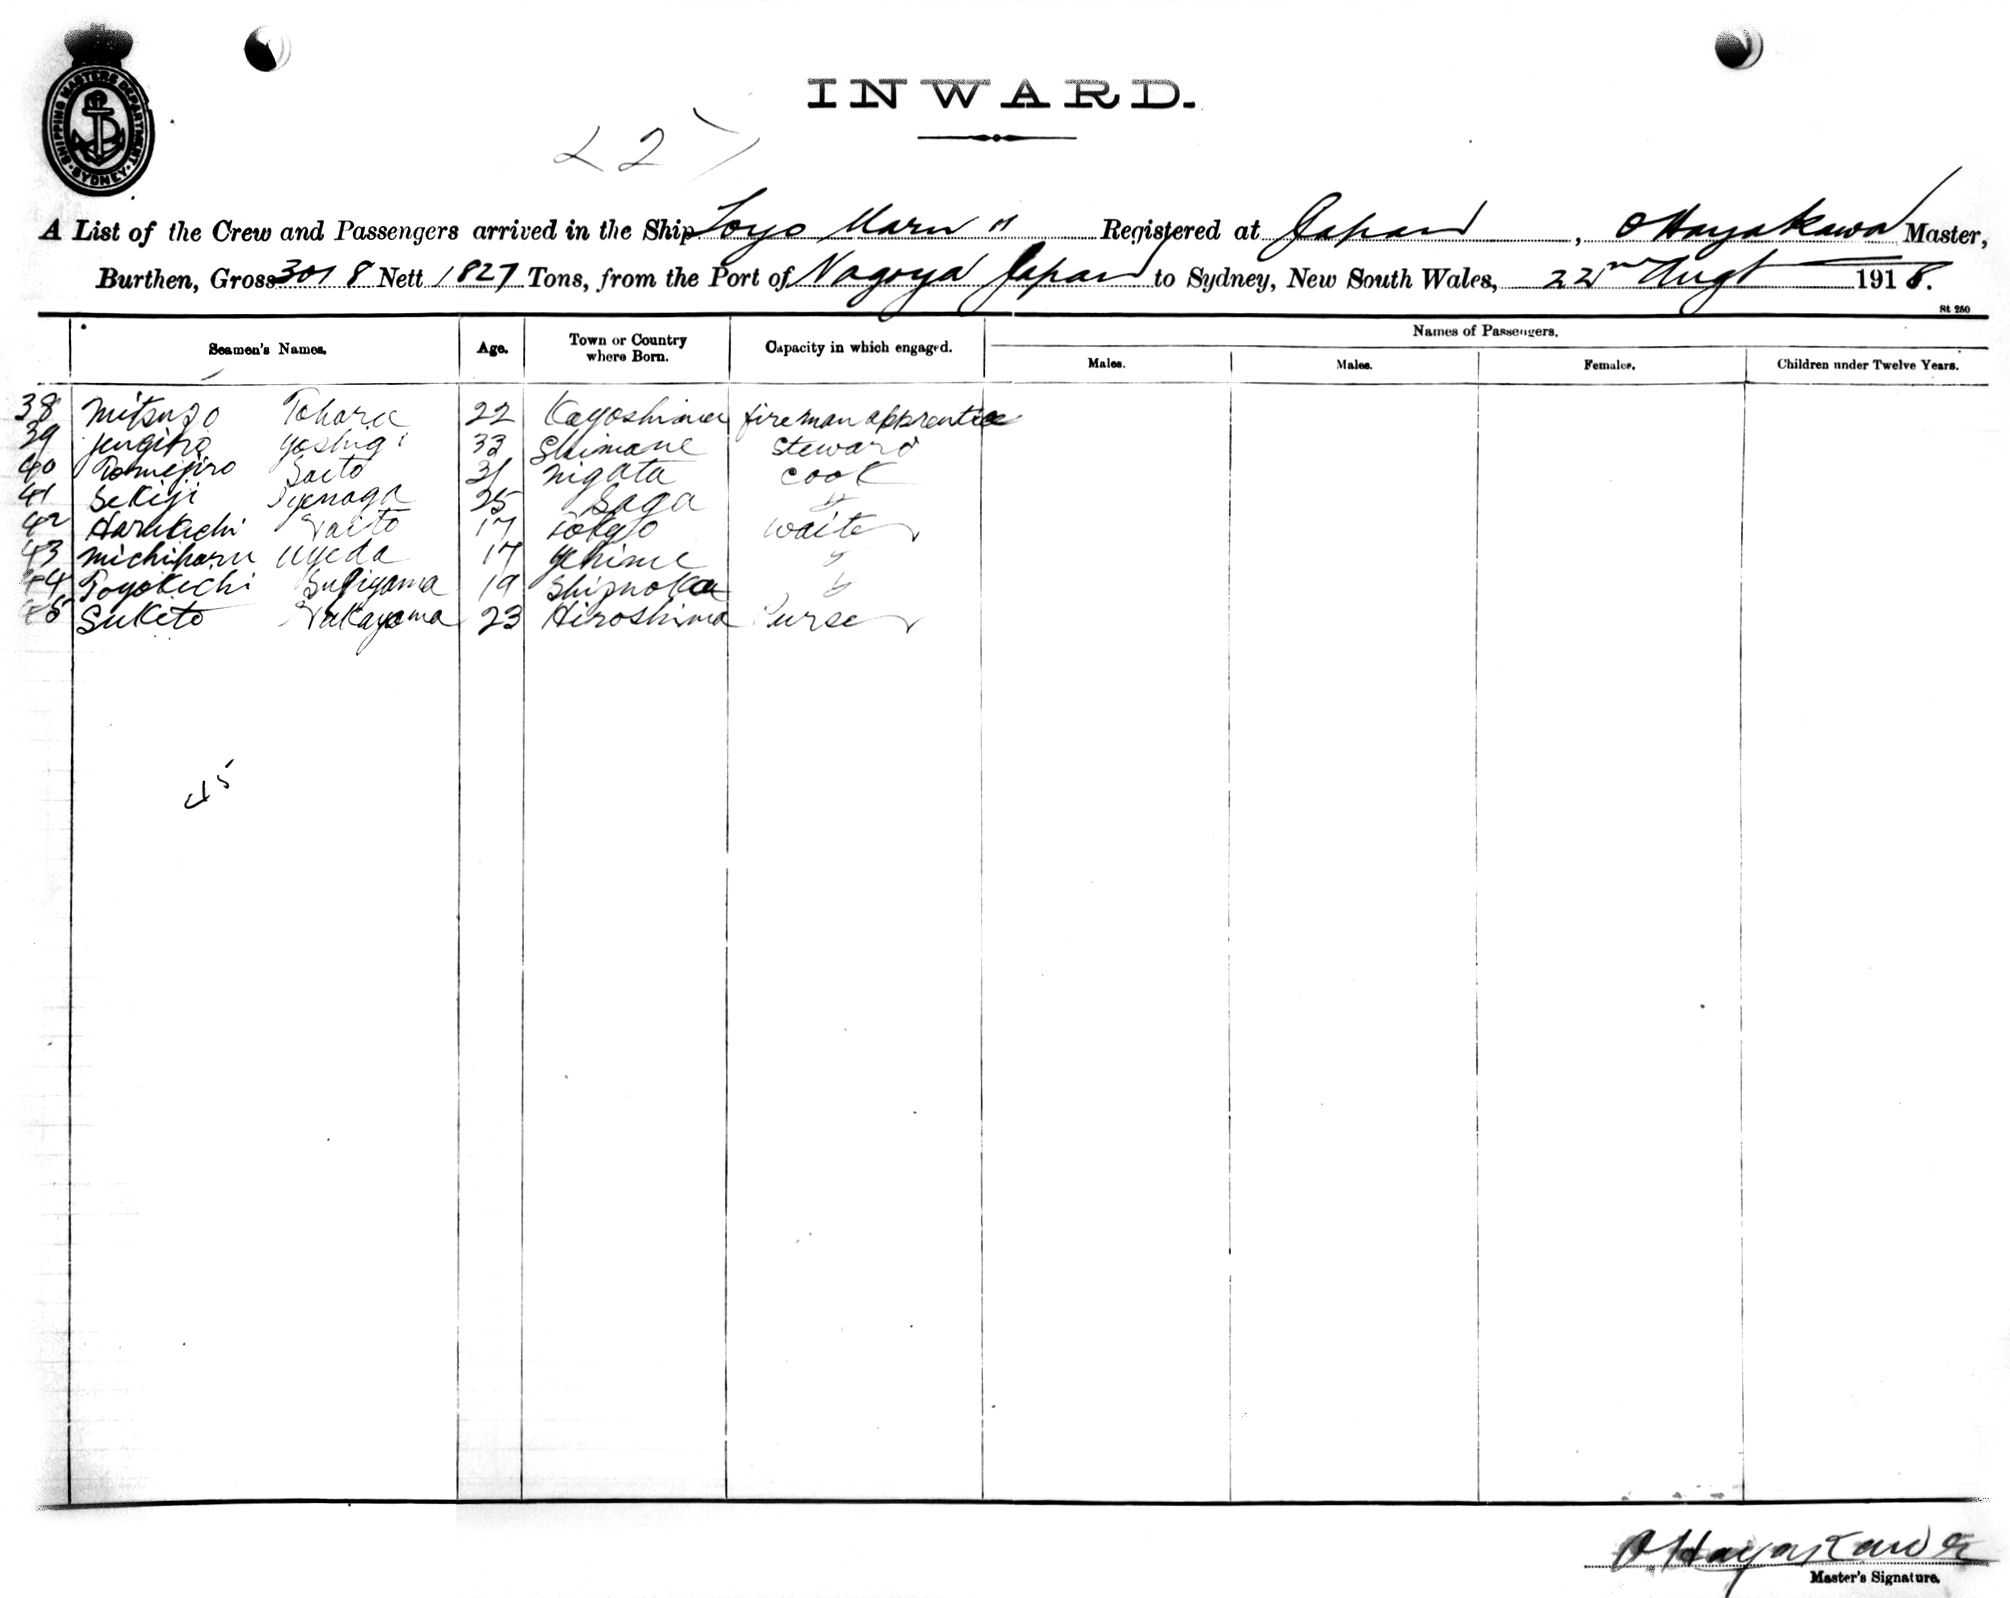 SHIPPING MASTERS DEPARTMENT SYDNEY
INWARD.
<2>
A List of the Crew and Passengers arrived in the Ship Toyo Maru " Registered at Japan, O Hayakawa Master,
Burthen, Gross 3018 Nett 1827 Tons, from the Port of Nagoya Japan to Sydney, New South Wales, 22nd Augt 1918.
St 250
Seamen's Names. Age. Town or Country where Born. Capacity in which engaged. Names of Passengers.
Males. Males. Females. Children under Twelve Years.
38 Mitsuzo Tohara 22 Kagoshima fireman apprentice
39 Yoshigi 33 Shimane Steward
40 Tomejiro Saito 31 Nigata Cook
41 Sekiji 25 Saga "
42 Harukichi Naito 17 Tokyo Waiter
43 Michiharu Uyeda 17 Yehime "
44 Toyokichi Sugiyama 19 Shizuoka "
45 Suketo Nakayama 23 Hiroshima Purser
45
O Hayakawa
Master's Signature.